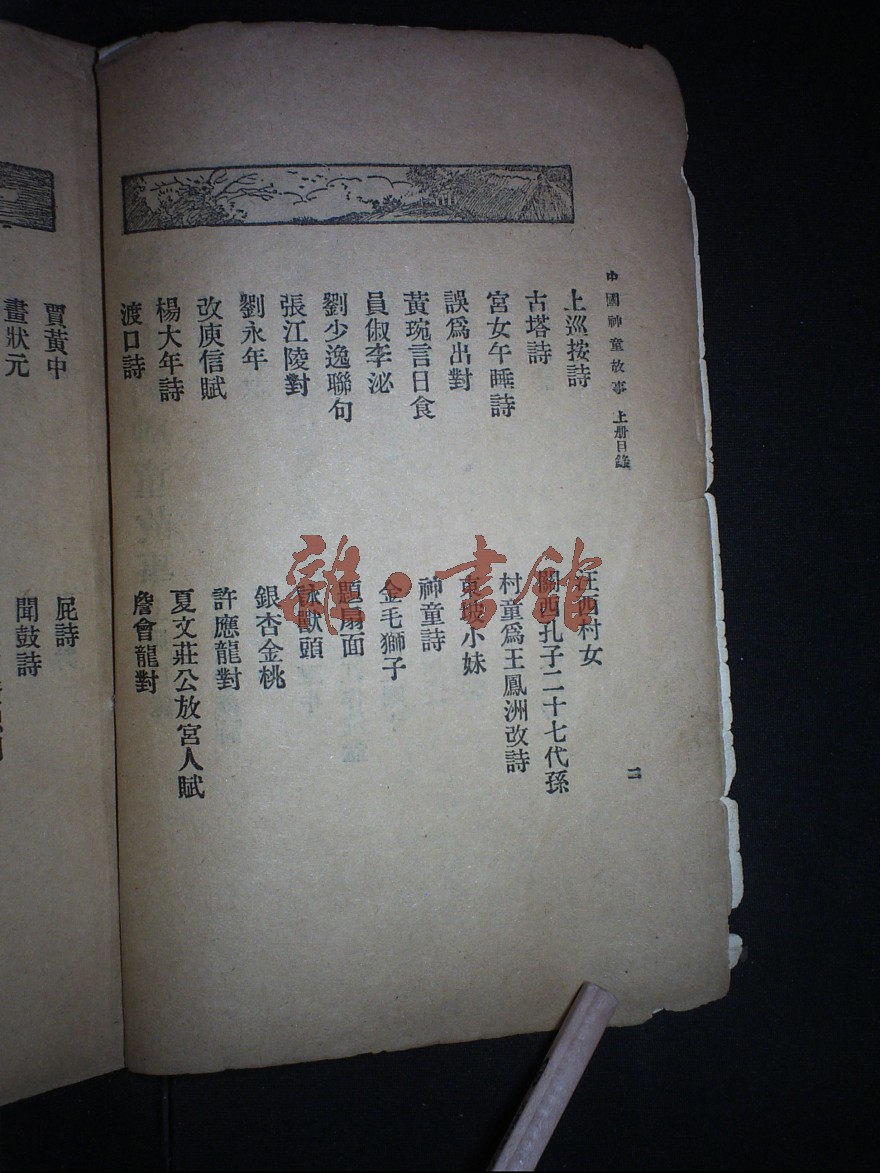 中國神童故事 上册目錄
二
上巡按詩
古塔詩
宮女午睡詩
誤爲出對
黃琬言日食
員俶李泌
劉少逸聯句
張江陵對
劉永年
改庾信賦
楊大年詩
渡口詩
江西村女
關西孔子二十七代孫
村童爲王鳳洲改詩
東坡小妹
神童詩
金毛獅子
題扇面
詠獸頭
銀杏金桃
許應龍對
夏文莊公放宮人賦
詹會龍對
賈黃中
畫狀元
屁詩
聞鼓詩
雜·書館